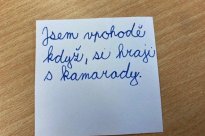 Jsem vpohodě
když, si hraji
s kamarady.